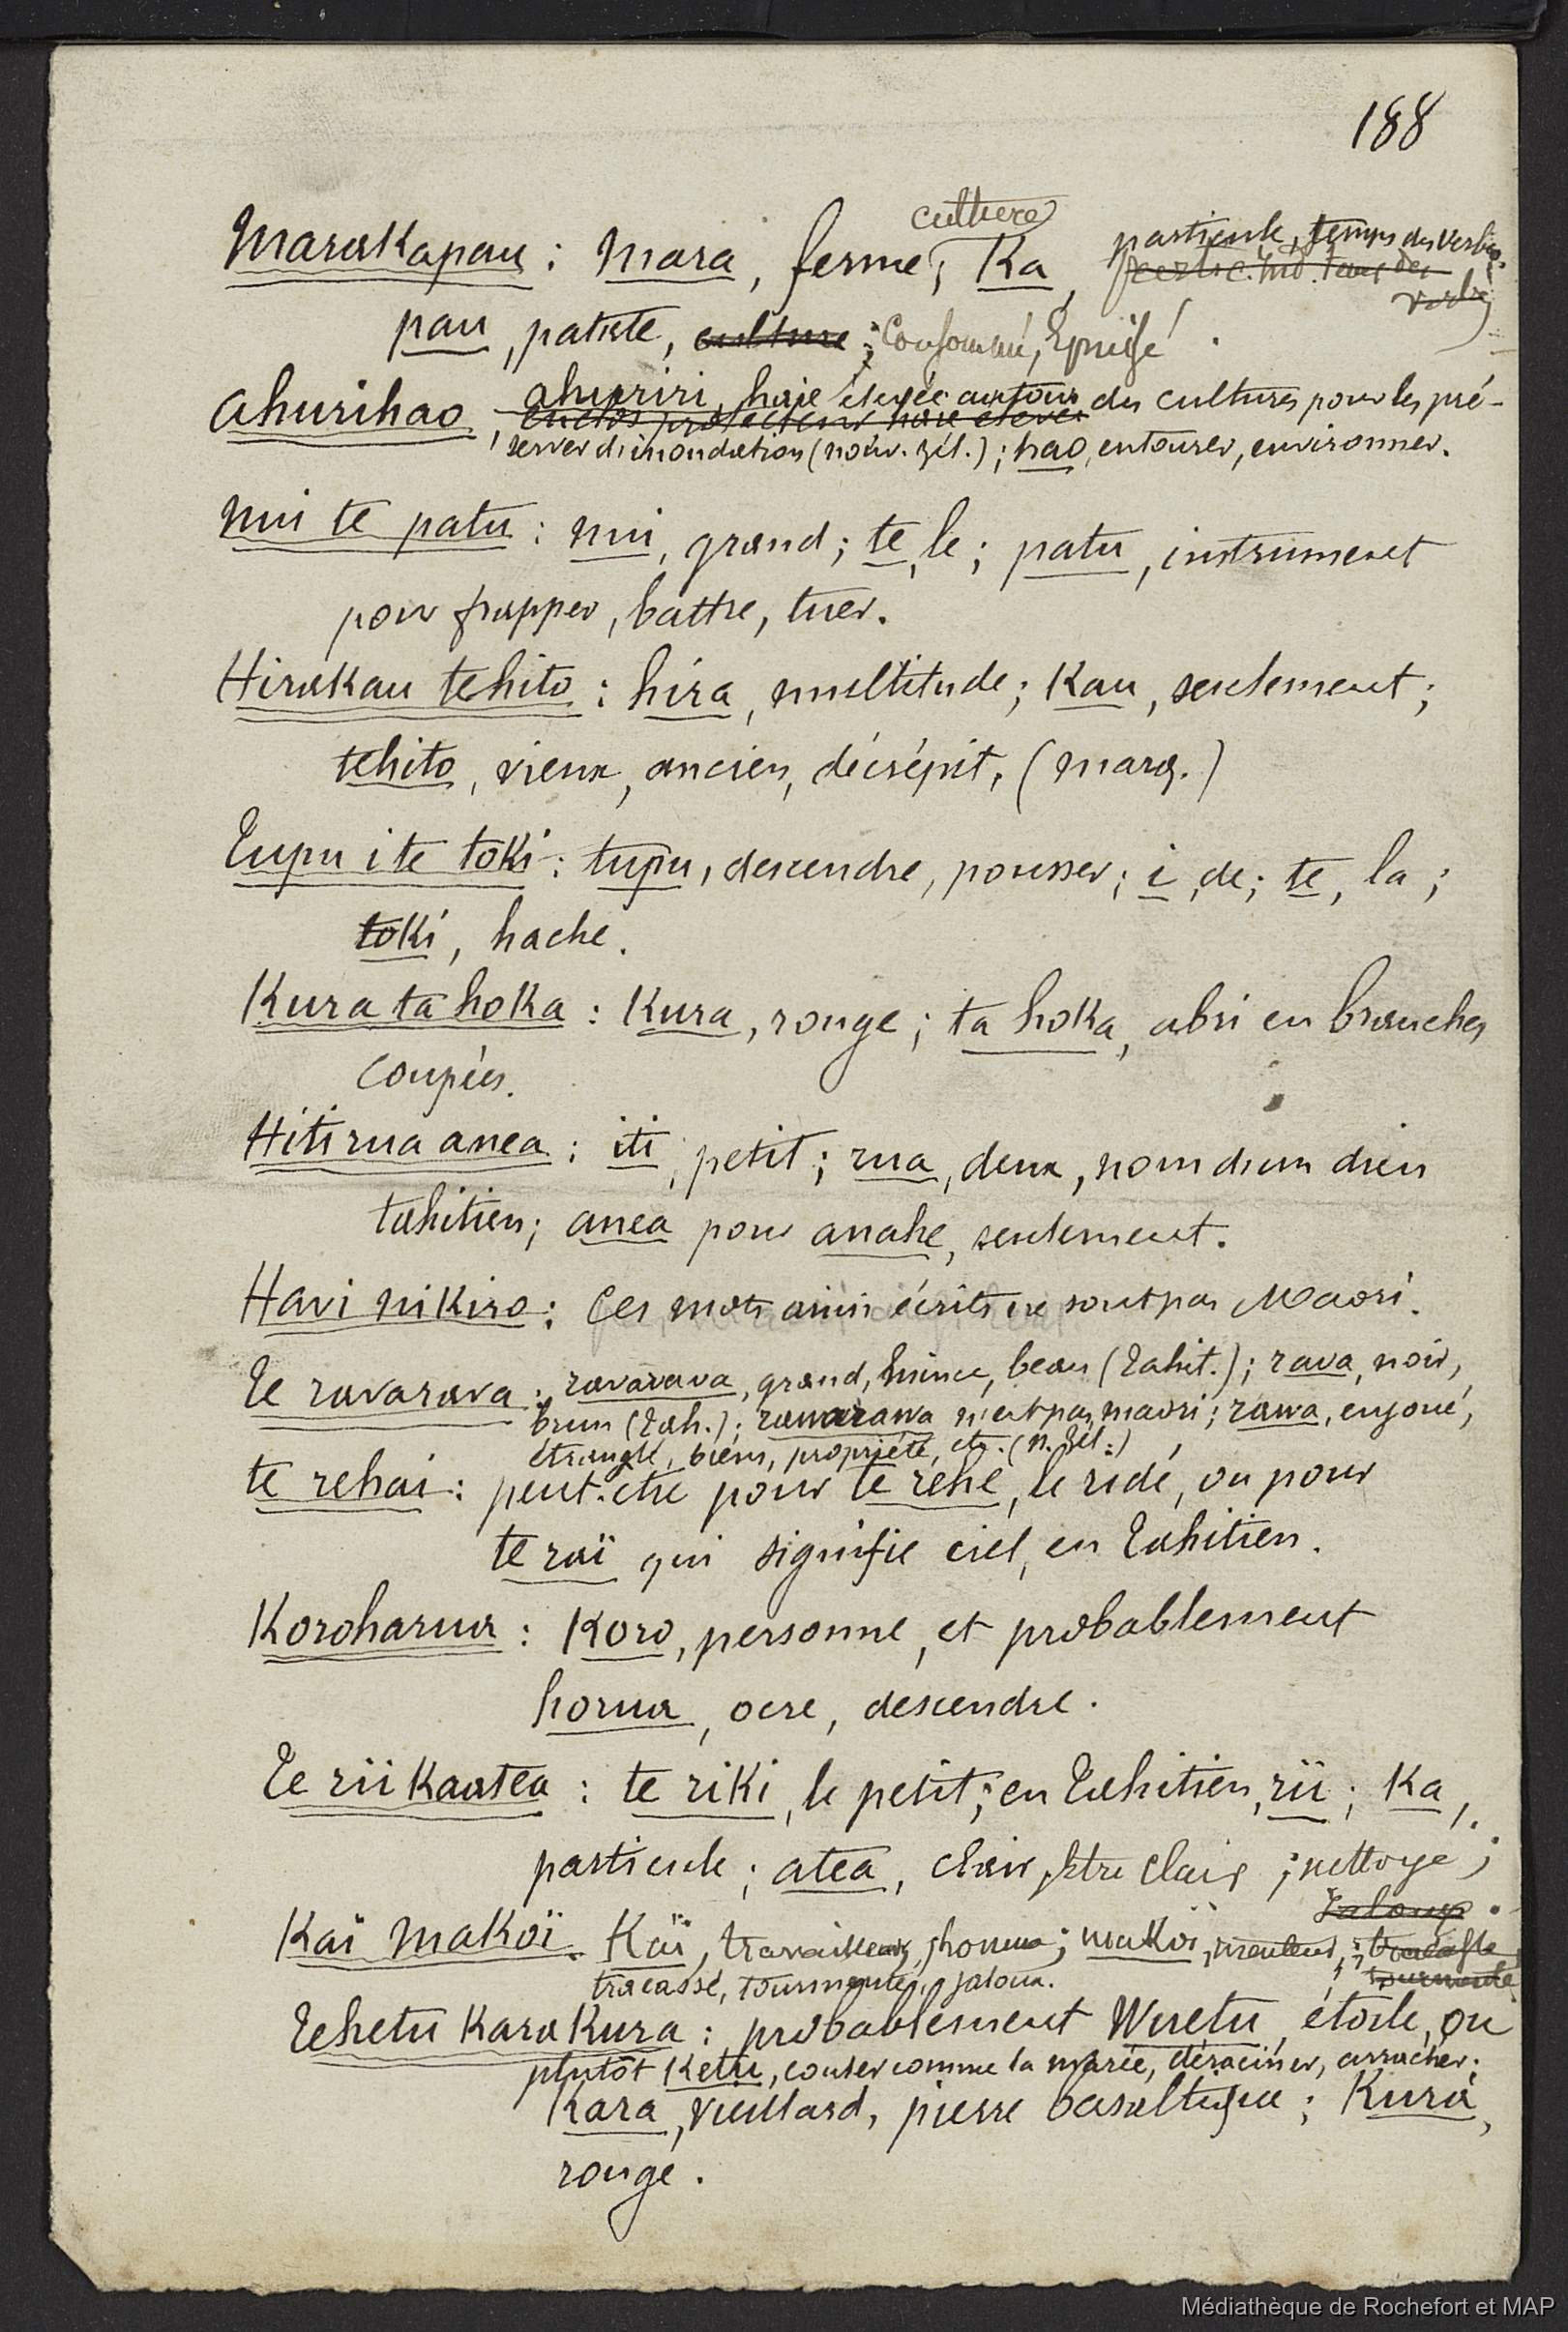 188
culture
Marakapau : Mara, ferme, Ka, particule, temps des verbes.
verbes
pau, patate, culture ; Consommé, Epuisé.
Ahurihao, ahuriri, haie élevée autour des cultures pour les pré-
enclos protecteur haie élevée
server d'inondation (nouv. zél.) ; hao, entourer, environner.
nui te patu : nui, grand ; te, le ; patu, instrument
pour frapper, battre, tuer.
Hirakau tehito : hira, multitude ; Kau, seulement ;
tehito, vieux, ancien, décrépit, (marq.)
Tupu i te toki : tupu, descendre, pousser ; i, de ; te, la ;
toki, hache.
Kura ta hoka : Kura, rouge ; ta hoka, abri en branches
Coupées.
Hiti rua anea : iti, petit ; rua, deux, nom d'un dieu
tahitien ; anea pour anahe, seulement.
Havi nikiro : Ces mots ainsi écrits ne sont pas Maori.
Te ravarava : ravarava, grand, mince, beau (Tahit.) ; rava, noir,
brun (Tah.) ; rawarawa n'est pas maori ; rawa, enjoué,
étranglé, biens, propriété, etc. (N. Zél.)
te rehai : peut-être pour te rehe, le ridé, ou pour
te raï qui signifie ciel, en Tahitien.
Koroharua : Koro, personne, et probablement
horua, ocre, descendre.
Te rii Kaatea : te riki, le petit ; en Tahitien, rii ; Ka,
particule ; atea, clair, Etre Clair ; nettoyé ;
Jaloux.
Kaï Makoï. Kaï, travailleur, homme ; makoï, menteur, ; tracassé
tracassé, tourmenté, jaloux. tourmenté
Tehetu KaraKura : probablement Whetu, étoile, ou
plutôt Ketu, couler comme la marée, déraciner, arracher ;
Kara, vieillard, pierre basaltique ; Kura,
rouge.
Médiathèque de Rochefort et MAP